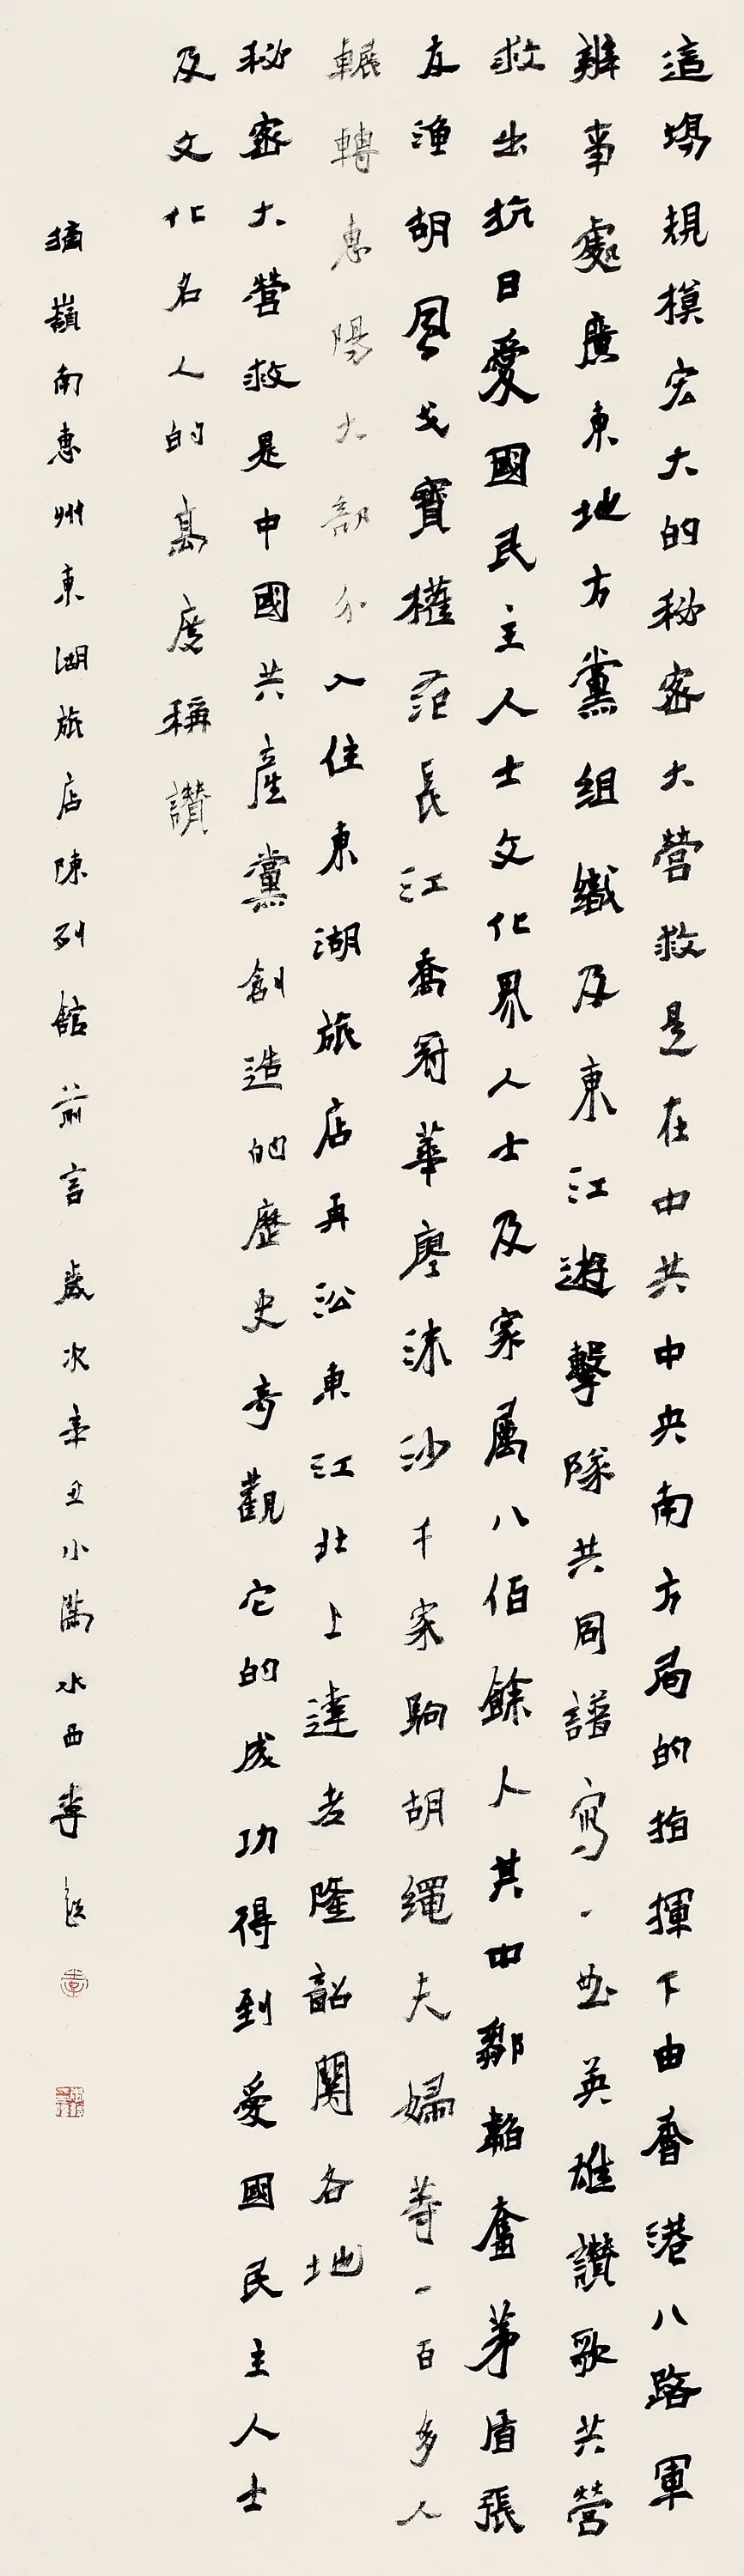 這場規模宏大的秘密大營救是在中共中央南方局的指揮下由香港八路軍
辦事處廣東地方黨組織及東江遊擊隊共同譜寫一曲英雄讚歌共營
救出抗日愛國民主人士文化界人士及家屬八佰餘人其中鄒韜奮茅盾張
友漁胡風戈寶權范長江喬冠華廖沫沙千家駒胡繩夫婦等一百多人
輾轉惠陽大部分入住東湖旅店再沿東江北上達老隆韶關各地
秘密大營救是中國共產黨創造的歷史奇觀它的成功得到愛國民主人士
及文化名人的高度稱讚
摘嶺南惠州東湖旅店陳列館前言歲次辛丑小滿水西李